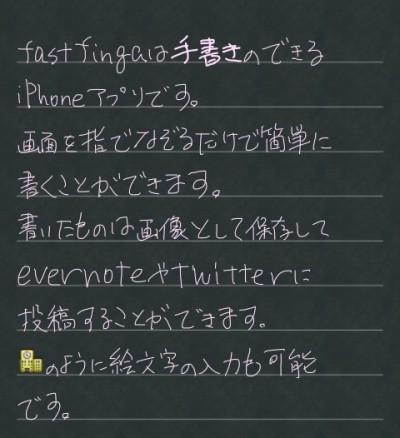 fastfingaは手書きのできる
iPhoneアプリです。
画面を指でなぞるだけで簡単に
書くことができます。
書いたものは画像として保存して
evernoteやtwitterに
投稿することができます。
🏫のように絵文字の入力も可能
です。